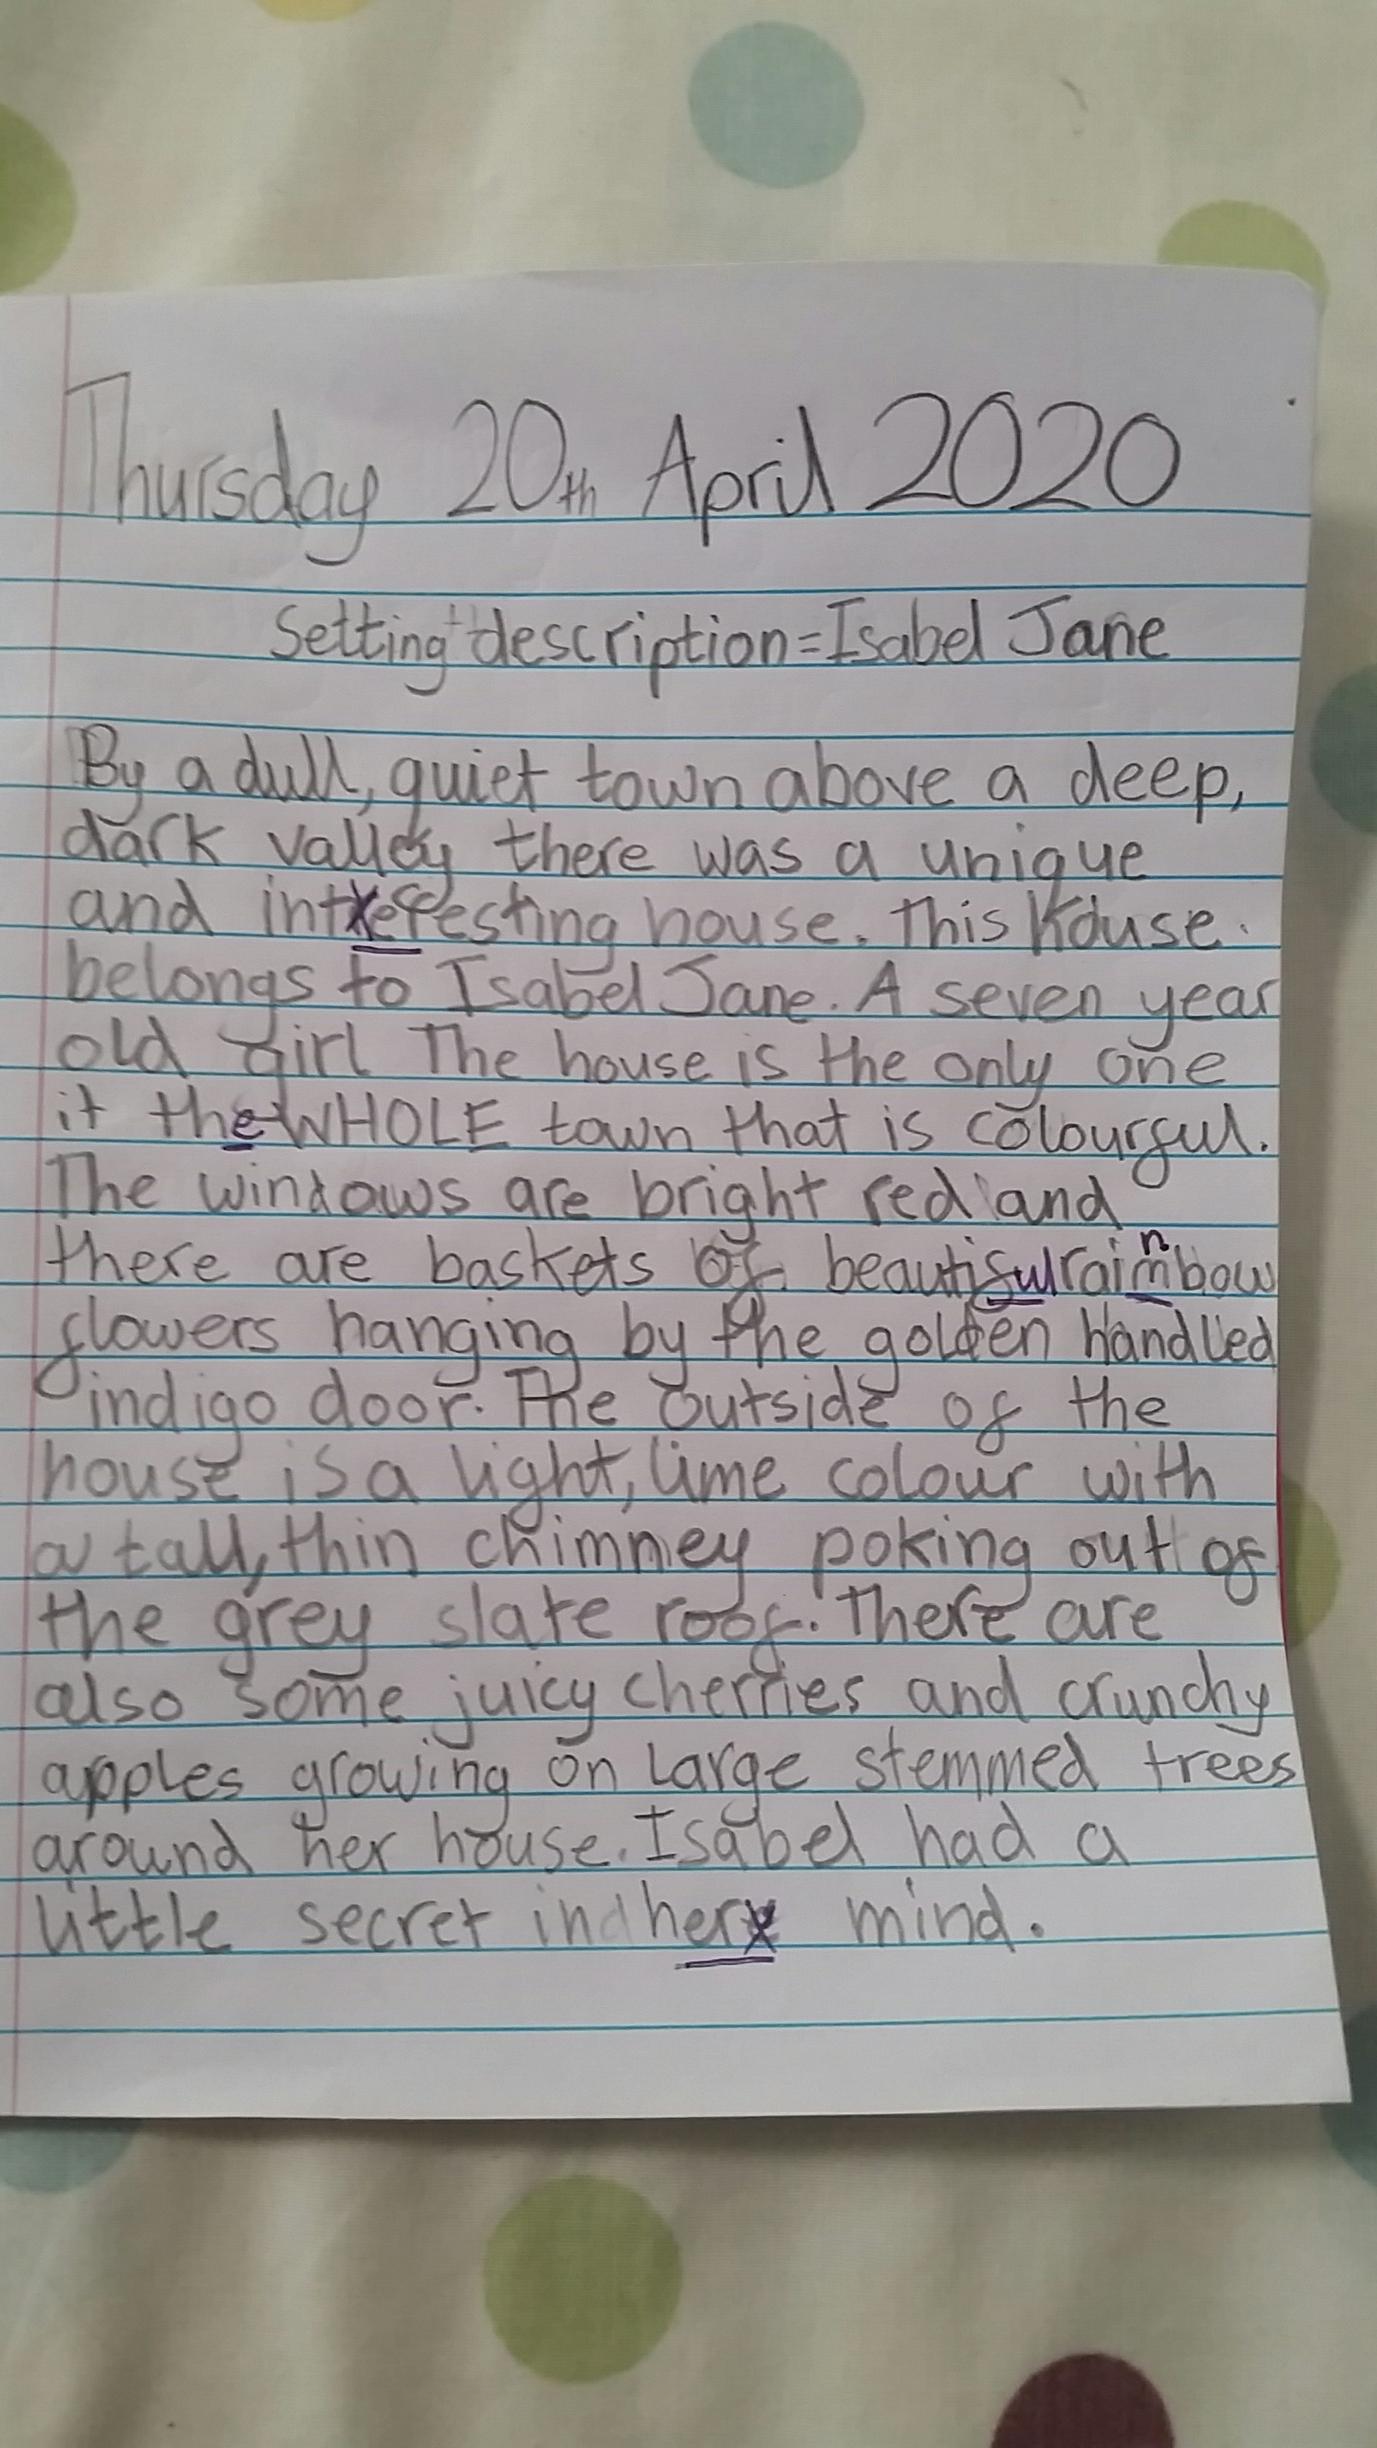 Thursday 20th April 2020
Setting description=Isabel Jane
By a dull, quiet town above a deep,
dark valley there was a unique
and interesting house. This house
belongs to Isabel Jane. A seven year
old girl The house is the only one
it the WHOLE town that is colourful.
The windows are bright red and
there are baskets of beautiful rainbow
flowers hanging by the golden handled
indigo door. The outside of the
house is a light, lime colour with
a tall, thin chimney poking out of
the grey slate roof. There are
also some juicy cherries and crunchy
apples growing on large stemmed trees
around her house. Isabel had a
little secret in her mind.